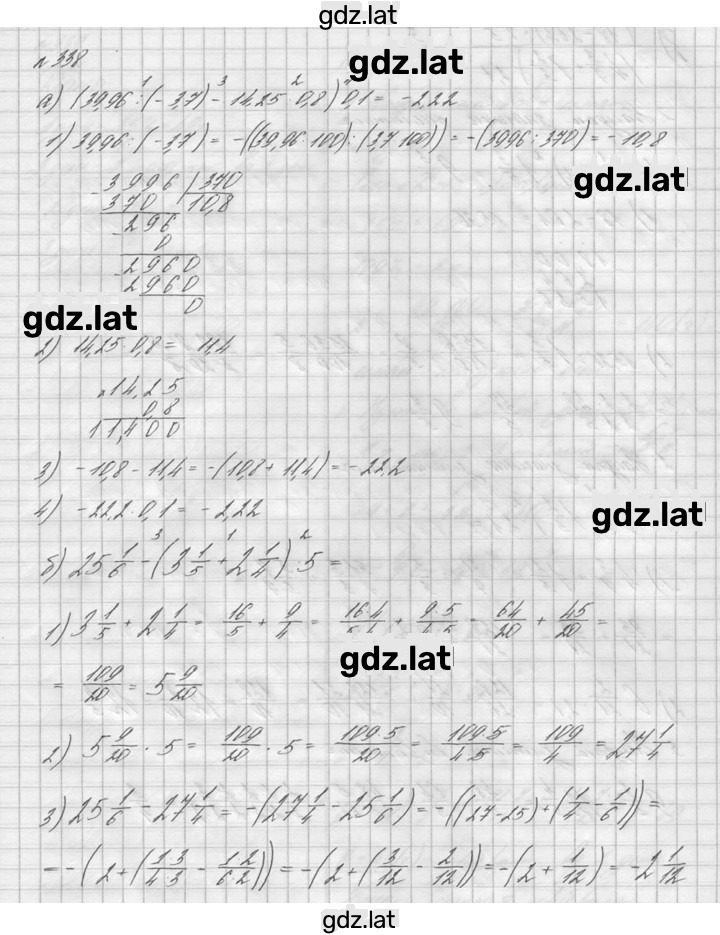 gdz.lat
№338
gdz.lat
а) (39,96 : (-3,7) - 14,25 · 0,8) · 0,1 = -2,22
1) 39,96 : (-3,7) = -((39,96·100) : (3,7·100)) = -(3996 : 370) = -10,8
gdz.lat
3996 | 370
370 | 10,8
296
0
2960
2960
0
gdz.lat
2) 14,25 · 0,8 = 11,4
14,25
0,8
11,400
3) -10,8 - 11,4 = -(10,8 + 11,4) = -22,2
4) -22,2 · 0,1 = -2,22
gdz.lat
б) 25 1/6 - (3 1/5 + 2 1/4) · 5 =
1) 3 1/5 + 2 1/4 = 16/5 + 9/4 = 16·4/5·4 + 9·5/4·5 = 64/20 + 45/20 =
gdz.lat
= 109/20 = 5 9/20
2) 5 9/20 · 5 = 109/20 · 5 = 109·5/20 = 109·5/4·5 = 109/4 = 27 1/4
3) 25 1/6 - 27 1/4 = -(27 1/4 - 25 1/6) = -((27-25) + (1/4 - 1/6)) =
= -(2 + (1·3/4·3 - 1·2/6·2)) = -(2 + (3/12 - 2/12)) = -(2 + 1/12) = -2 1/12
gdz.lat